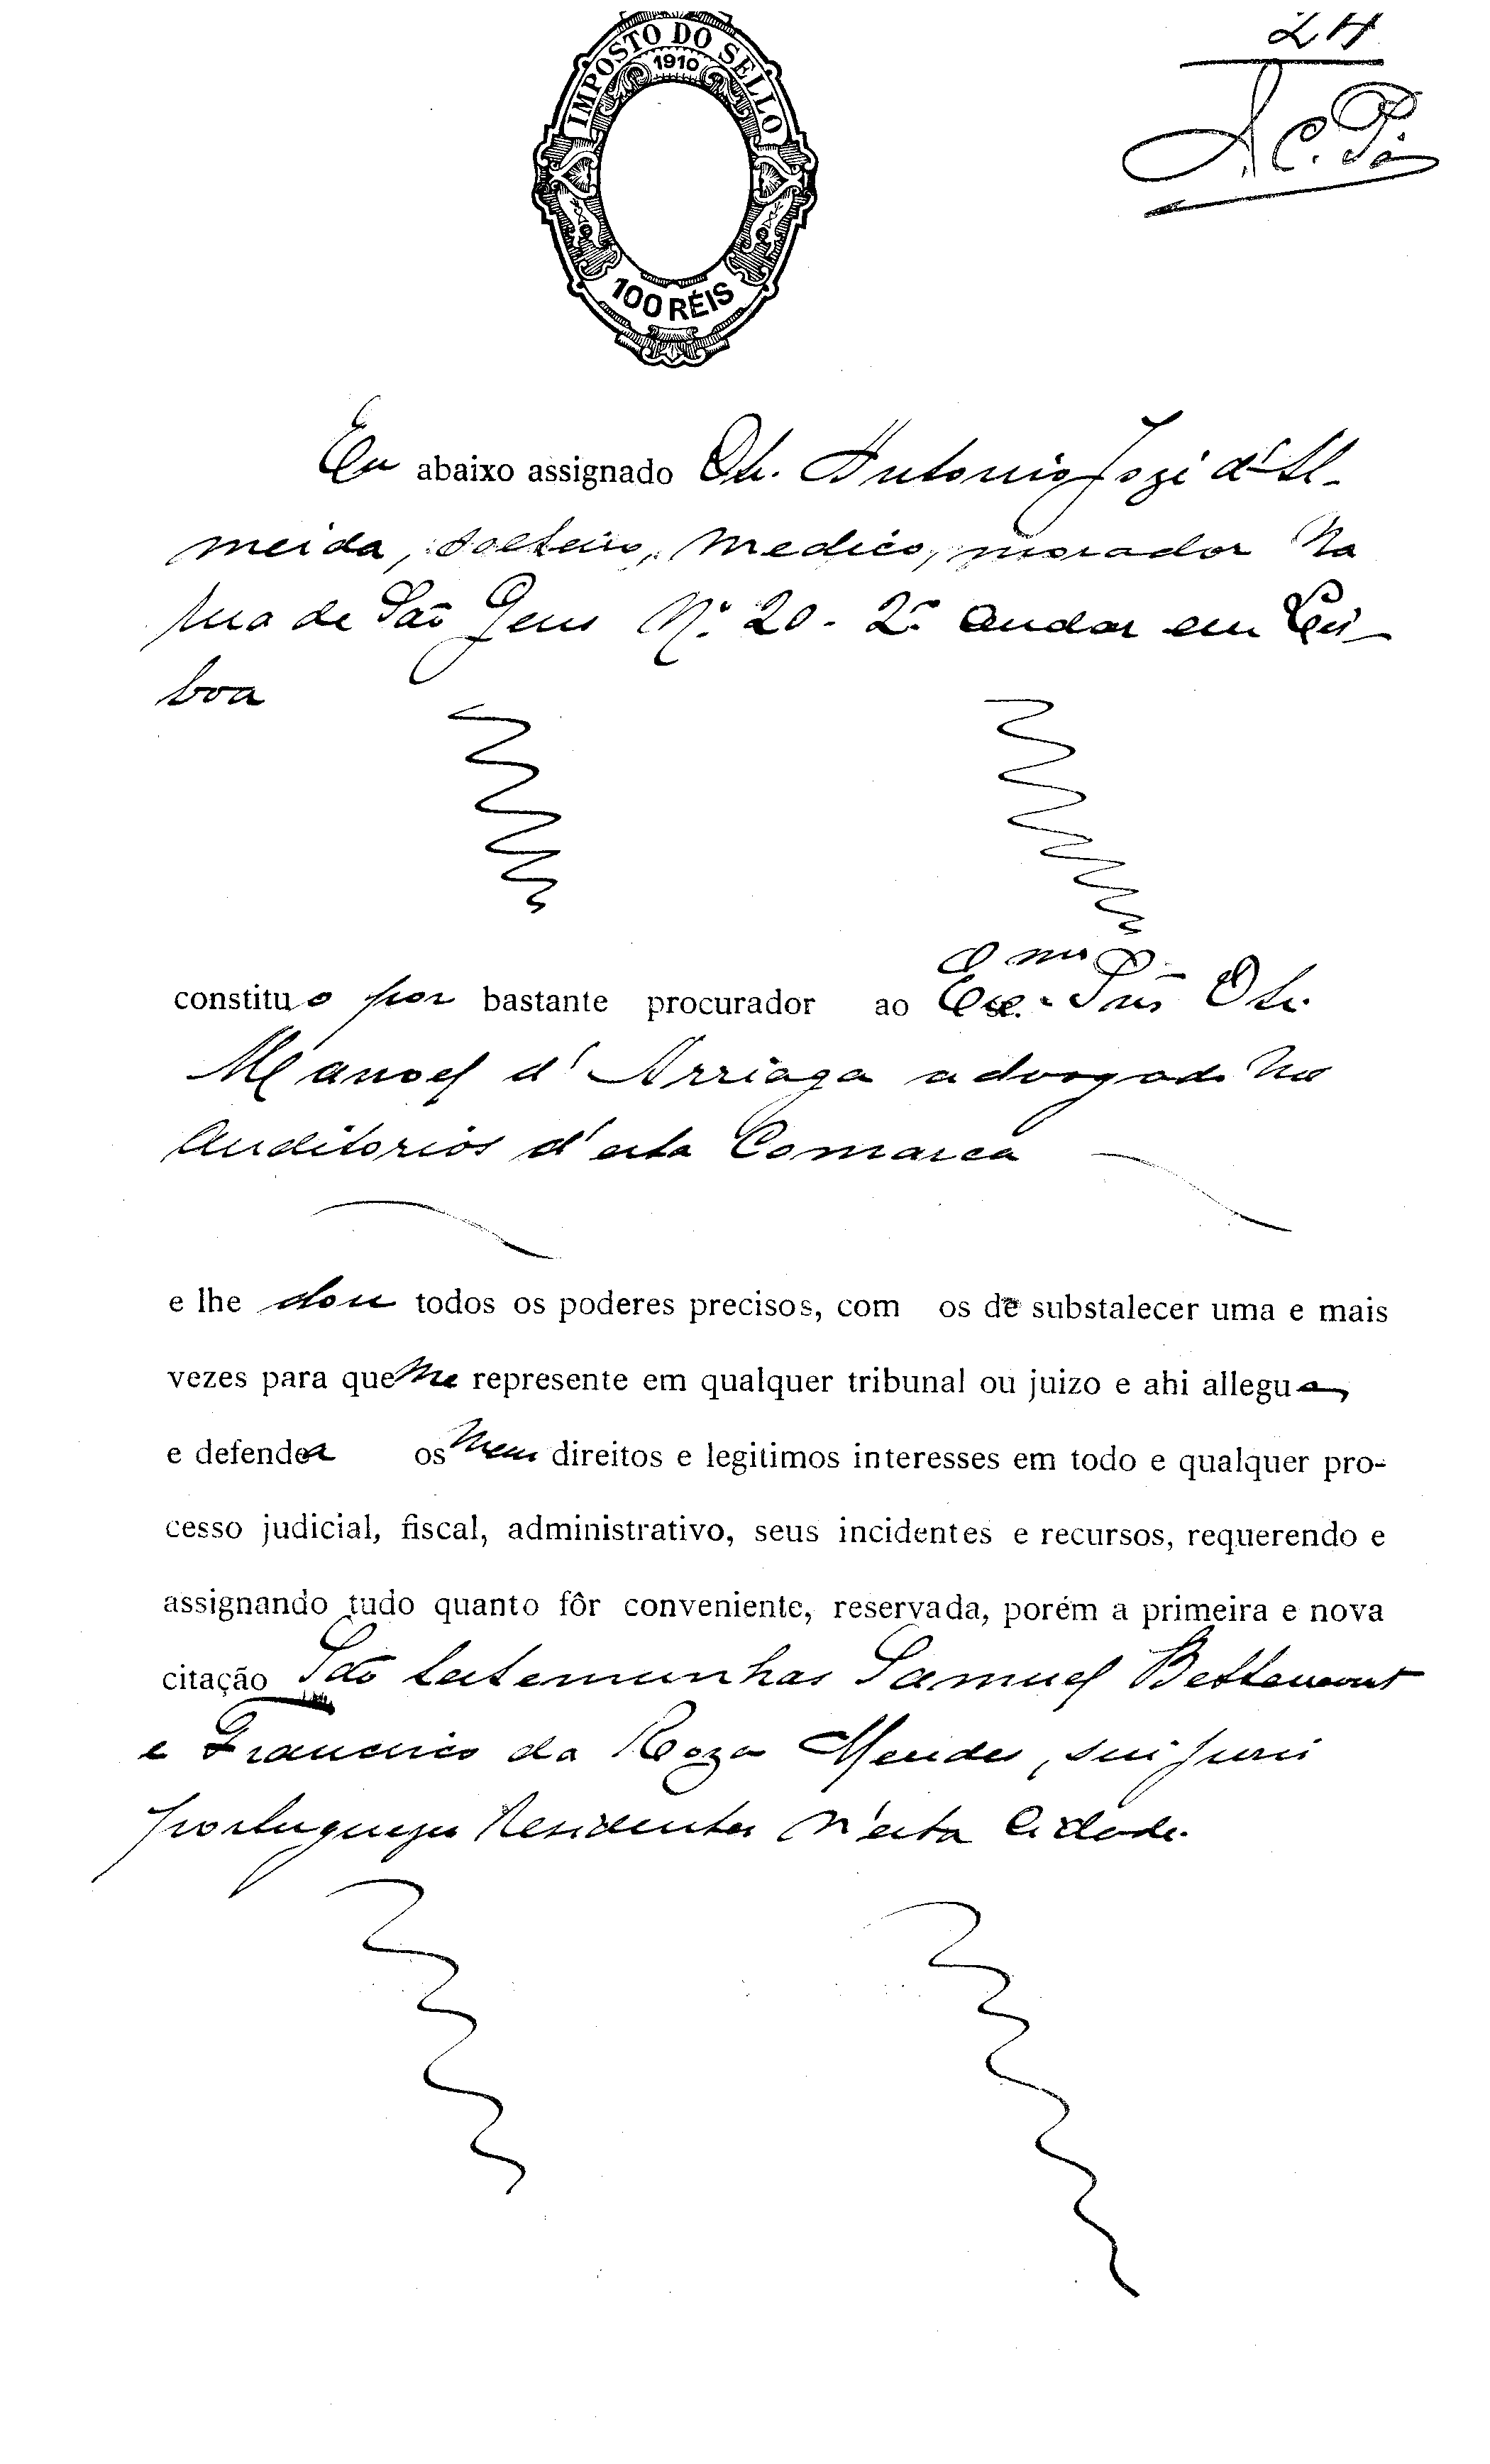 24
A. C. Pó
IMPOSTO DO SELLO
1910
100 RÉIS
Eu abaixo assignado Dr. Antonio José d'Al-
meida, solteiro, medico, morador na
rua de São Gens Nº 20 - 2º andar em Lis-
boa
constituo por bastante procurador ao Exmo Snr. Dr.
Manoel d'Arriaga advogado nos
Auditorios d'esta Comarca
e lhe dou todos os poderes precisos, com os de substalecer uma e mais
vezes para que me represente em qualquer tribunal ou juizo e ahi allegue
e defenda os meus direitos e legitimos interesses em todo e qualquer pro-
cesso judicial, fiscal, administrativo, seus incidentes e recursos, requerendo e
assignando tudo quanto fôr conveniente, reservada, porém a primeira e nova
citação São testemunhas Samuel Bettencourt
e Francisco da Roza Mendes, sui juris
portuguezes residentes n'esta Cidade.